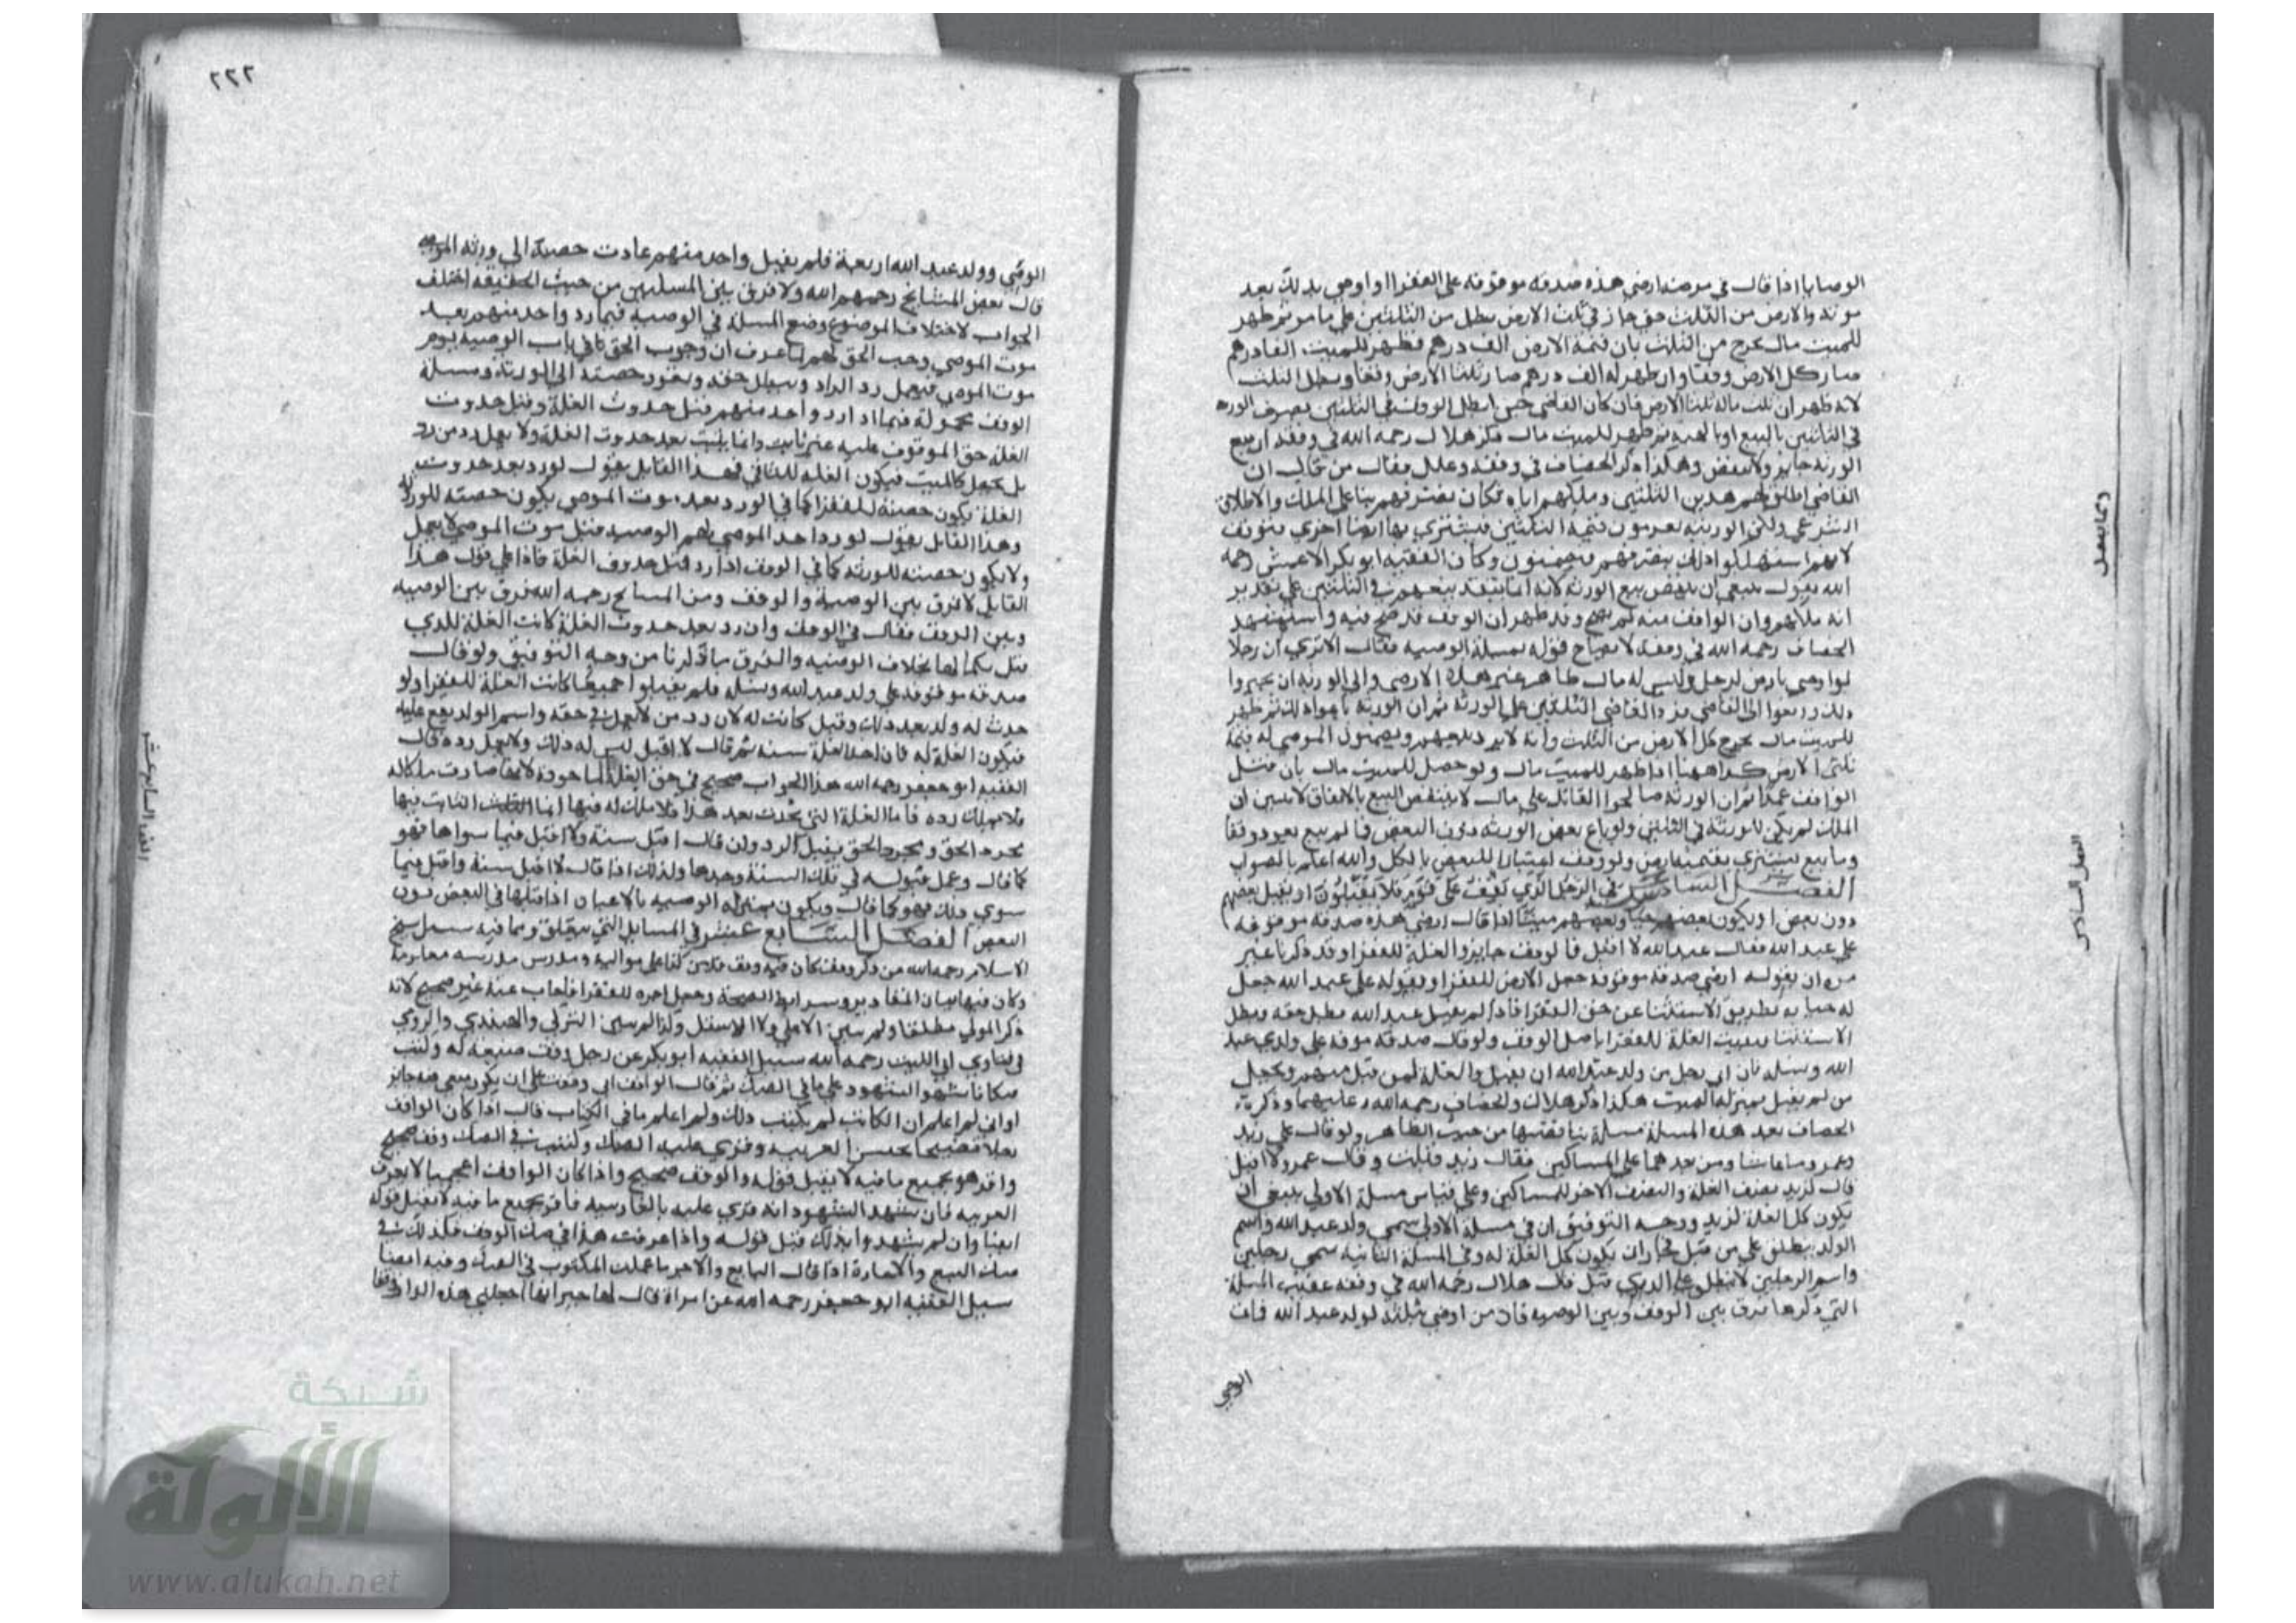 الوصايا اذا قال في مرضه ارضي هذه صدقة موقوفة على الفقرا او اوصى بذلك بعد
موته والارض من الثلث حتى جاز في ثلث الارض بطل من الثلثين على ما مر ثم ظهر
للميت مال يخرج من الثلث بان قيمة الارض الف درهم فظهر للميت الفا درهم
صار كل الارض وقفا وان ظهر له الف درهم صار ثلثا الارض وقفا وبطل الثلث
لانه ظهر ان ثلث ماله ثلثا الارض فان كان القاضي حين ابطل الوقف في الثلثين تصرف الورثة
في الثلثين بالبيع او بالهبة ثم ظهر للميت مال ذكر هلال رحمه الله في وقفه ان بيع
الورثة جايز ولا ينقض وهكذا ذكر الخصاف في وقفه وعلل فقال من قبل ان
القاضي اطلق لهم هذين الثلثين وملكهم اياه فكان تصرفهم بناء على الملك والاطلاق
الشرعي ولكن الورثة يغرمون قيمة الثلثين فيشترى بها ارضا اخرى فتوقف
لانهم استهلكوا ذلك ببيعهم فيضمنون وكان الفقيه ابو بكر الاعمش رحمه
الله يقول ينبغي ان ينقض بيع الورثة لانه انما ينفذ بيعهم في الثلثين على تقدير
انه ملكهم وان الوقف فيه لم يصح وقد ظهر ان الوقف قد صح فيه واستشهد
الخصاف رحمه الله في وقفه لايضاح قوله بمسلة الوصية فقال الا ترى ان رجلا
لو اوصى بارض لرجل وليس له مال ظاهر غير هذه الارض وابى الورثة ان يجيزوا
ذلك ورفعوا الى القاضي فرد القاضي الثلثين على الورثة ثم ان الورثة باعوا ذلك ثم ظهر
للميت مال يخرج كل الارض من الثلث وانه لا يرد بيعهم ويضمنون الموصى له قيمة
ثلثي الارض كذا ههنا اذا ظهر للميت مال ولو حصل للميت مال بان قتل
الواقف عمدا ثم ان الورثة صالحوا القاتل على مال لا ينتقض البيع بالاتفاق لا يتبين ان
الملك لم يكن للورثة في الثلثين ولو باع بعض الورثة دون البعض فما لم يبع يعود وقفا
وما بيع يشترى بقيمته ارض وتوقف اعتبارا للبعض بالكل والله اعلم بالصواب
الفصل السادس عشر في الرجل الذي يقف على قوم فلا يقبلون او يقبل بعضهم
دون بعض او يكون بعضهم حيا وبعضهم ميتا اذا قال ارضي هذه صدقة موقوفة
على عبد الله فقال عبد الله لا اقبل فالوقف جايز والغلة للفقرا وقد ذكرنا غير
مرة ان بقوله ارضي صدقة موقوفة جعل الارض للفقرا وبقوله على عبد الله جعل
له حيا به بطريق الاستثنا عن حق الفقرا فاذا لم يقبل عبد الله بطل حقه وبطل
الاستثنا فبقيت الغلة للفقرا باصل الوقف ولو قال صدقة موقوفة على ولدي عبد
الله ونسله فان ابى رجل من ولد عبد الله ان يقبل فالغلة لمن قبل منهم ويجعل
من لم يقبل بمنزلة الميت هكذا ذكر هلال والخصاف رحمة الله عليهما وذكر
الخصاف بعد هذه المسلة مسلة يناقضها من حيث الظاهر ولو قال على زيد
وعمرو ما عاشا ومن بعدهما على المساكين فقال زيد قبلت وقال عمرو لا اقبل
قال لزيد نصف الغلة والنصف الاخر للمساكين وعلى قياس مسلة الاولى ينبغي ان
يكون كل الغلة لزيد ووجه التوفيق ان في مسلة الاولى سمى ولد عبد الله واسم
الولد ينطلق على من قبل فجاز ان يكون كل الغلة له وفي المسلة الثانية سمى رجلين
واسم الرجلين لا ينطلق على الذي قبل قال هلال رحمه الله في وقفه عقيب المسلة
التي ذكرها فرق بين الوقف وبين الوصية فان من اوصى بثلثه لولد عبد الله فمات
الموصي
وما يتصل
الفصل السادس
٢٢٢
الموصي وولد عبد الله اربعة فلم يقبل واحد منهم عادت حصته الى ورثة الموصي
قال بعض المشايخ رحمهم الله ولا فرق بين المسلتين من حيث الحقيقة اختلف
الجواب لاختلاف الموضوع وضع المسلة في الوصية فيما رد واحد منهم بعد
موت الموصي وجب الحق لهم لما عرف ان وجوب الحق كما في باب الوصية يوم
موت الموصي فيعمل رد الراد ويبطل حقه وتعود حصته الى الورثة ومسلة
الوقف محمولة فيما اذا رد واحد منهم قبل حدوث الغلة وقبل حدوث
الغلة حق الموقوف عليه غير ثابت وانما يثبت بعد حدوث الغلة ولا يعمل رد من رد
بل يجعل كالميت فيكون الغلة للباقي فهذا القايل يقول لو رد بعد حدوث
الغلة يكون حصته للفقرا كما في الورد بعد موت الموصي يكون حصته للورثة
وهذا القايل يقول لو رد احد الموصى لهم الوصية قبل موت الموصي لا يعمل
ولا يكون حصته للورثة كما في الوقف اذا رد قبل حدوث الغلة فاذا على قول هذا
القايل لا فرق بين الوصية والوقف ومن المشايخ رحمه الله من فرق بين الوصية
وبين الوقف فقال في الوقف وان رد بعد حدوث الغلة كانت الغلة للذي
قبل بكمالها بخلاف الوصية والفرق ما ذكرنا من وجه التوفيق ولو قال
صدقة موقوفة على ولد عبد الله ونسله فلم يقبلوا جميعا كانت الغلة للفقرا ولو
حدث له ولد بعد ذلك وقبل كانت له لان رد من لا يعمل في حقه واسم الولد يقع عليه
فيكون الغلة له فان اخذ الغلة سنة ثم قال لا اقبل ليس له ذلك ولا يعمل رده قال
الفقيه ابو جعفر رحمه الله هذا الجواب صحيح في حق الغلة الماخوذة لانها صارت ملكا له
فلا يملك رده فاما الغلة التي تحدث بعد هذا فلا ملك له فيها انما الثابت فيها
مجرد الحق ومجرد الحق يقبل الرد ولو قال اقبل سنة ولا اقبل فيما سواها فهو
كما قال وعمل قبوله في تلك السنة وحدها ولذلك اذا قال لا اقبل سنة واقبل فيما
سوى ذلك فهو كما قال ويكون بمنزلة الوصية بالاعيان اذا قبلها في البعض دون
البعض الفصل السابع عشر في المسايل التي يتعلق وما فيه سيل شيخ
الاسلام رحمه الله من ذكر وقف كان فيه وقف فلان كذا على مواليه ومدرس مدرسة معلومة
وكان فيها بيان المقادير وسرايط الصحة وجعل اخره للفقرا فاجاب عنه غير صحيح لانه
ذكر المولى مطلقا ولم يبين الاعلى ولا الاسفل وكذا لم يبين التركي والهندي والرومي
وفي فتاوى ابي الليث رحمه الله سيل الفقيه ابو بكر عن رجل وقف ضيعة له وكتب
صكا فاشهد الشهود على ما في الصك ثم قال الواقف اني وقفت على ان يكون بيعي فيه جايز
اواني لم اعلم ان الكاتب لم يكتب ذلك ولم اعلم ما في الكتاب قال اذا كان الواقف
رجلا فصيحا يحسن العربية وقري عليه الصك وكتب في الصك وقف صحيح
واقر هو بجميع ما فيه لا يقبل قوله والوقف صحيح واذا كان الواقف اعجميا لا يعرف
العربية فان شهد الشهود انه قري عليه بالفارسية فاقر بجميع ما فيه لا يقبل قوله
ايضا وان لم يشهدوا بذلك قبل قوله واذا عرفت هذا في صك الوقف فكذلك في
صك البيع والاجارة اذا قال البايع والاجر ما علمت المكتوب في الصك وفيه ايضا
سيل الفقيه ابو جعفر رحمه الله عن امراة قال لها جيرانها اجعلي هذه الدار وقفا
الفصل السابع عشر
شبكة
الألوكة
www.alukah.net